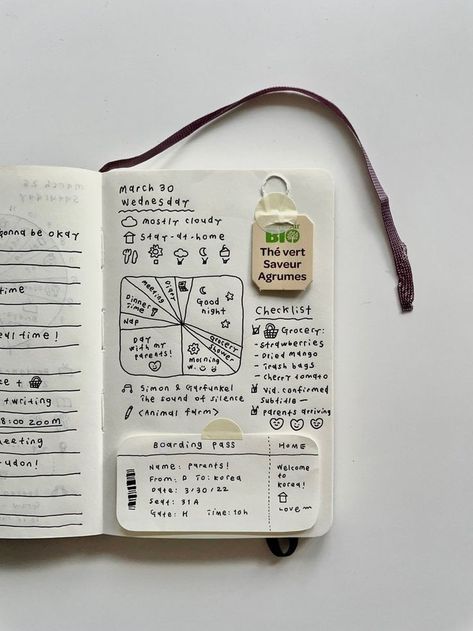 gonna be okay
time
eal time!
ce +
+ writing
8:00 zoom
meeting
udon!
March 30
Wednesday
mostly cloudy
Stay-at-home
Meeting
Diary
Dinner
Time
Nap
Good
night
Grocery
Shower
Day
with my
parents!
Morning
w.
Simon & Garfunkel
The sound of silence
<Animal farm>
BIO
Thé vert
Saveur
Agrumes
Checklist
Grocery:
- strawberries
- Dried mango
- Trash bags
- cherry tomato
vid. confirmed
subtitle —
Parents arriving
Boarding pass
Name: parents!
From: D To: Korea
Date: 3/30/22
Seat: 31A
Gate: H Time: 10h
HOME
Welcome
to
Korea!
Love